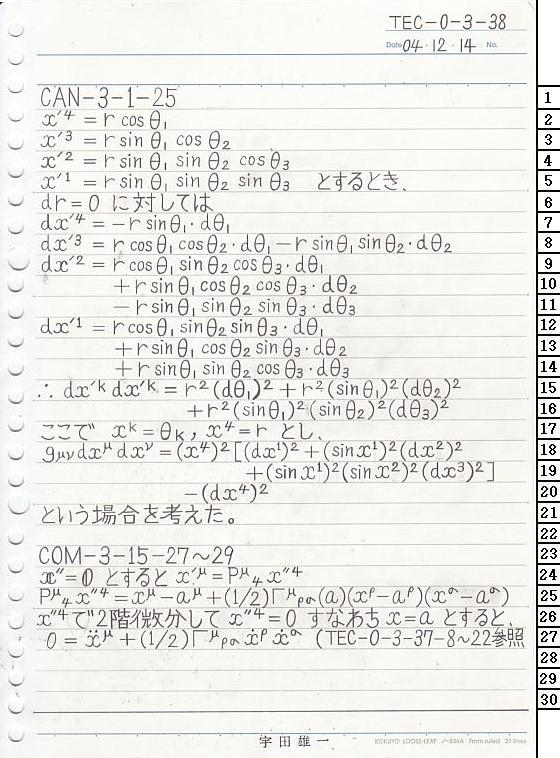 TEC-0-3-38
Date 04・12・14 No.
CAN-3-1-25
x′⁴ = r cosθ₁
x′³ = r sinθ₁ cosθ₂
x′² = r sinθ₁ sinθ₂ cosθ₃
x′¹ = r sinθ₁ sinθ₂ sinθ₃ とするとき、
dr=0 に対しては
dx′⁴ = −r sinθ₁・dθ₁
dx′³ = r cosθ₁ cosθ₂・dθ₁ − r sinθ₁ sinθ₂・dθ₂
dx′² = r cosθ₁ sinθ₂ cosθ₃・dθ₁
+ r sinθ₁ cosθ₂ cosθ₃・dθ₂
− r sinθ₁ sinθ₂ sinθ₃・dθ₃
dx′¹ = r cosθ₁ sinθ₂ sinθ₃・dθ₁
+ r sinθ₁ cosθ₂ sinθ₃・dθ₂
+ r sinθ₁ sinθ₂ cosθ₃・dθ₃
∴ dx′ᵏ dx′ᵏ = r²(dθ₁)² + r²(sinθ₁)²(dθ₂)²
+ r²(sinθ₁)²(sinθ₂)²(dθ₃)²
ここで xᵏ = θₖ, x⁴ = r とし、
gμν dx^μ dx^ν = (x⁴)²[(dx¹)² + (sin x¹)²(dx²)²
+ (sin x¹)²(sin x²)²(dx³)²]
− (dx⁴)²
という場合を考えた。
COM-3-15-27〜29
x″ = 0 とすると x′^μ = P^μ₄ x″⁴
P^μ₄ x″⁴ = x^μ − a^μ + (1/2)Γ^μ_ρσ(a)(x^ρ − a^ρ)(x^σ − a^σ)
x″⁴で2階微分して x″⁴ = 0 すなわち x = a とすると、
0 = ẍ^μ + (1/2)Γ^μ_ρσ ẋ^ρ ẋ^σ (TEC-0-3-37-8〜22参照
宇田雄一
KOKUYO LOOSE-LEAF ノ-836A 7mm ruled 31 lines
1
2
3
4
5
6
7
8
9
10
11
12
13
14
15
16
17
18
19
20
21
22
23
24
25
26
27
28
29
30